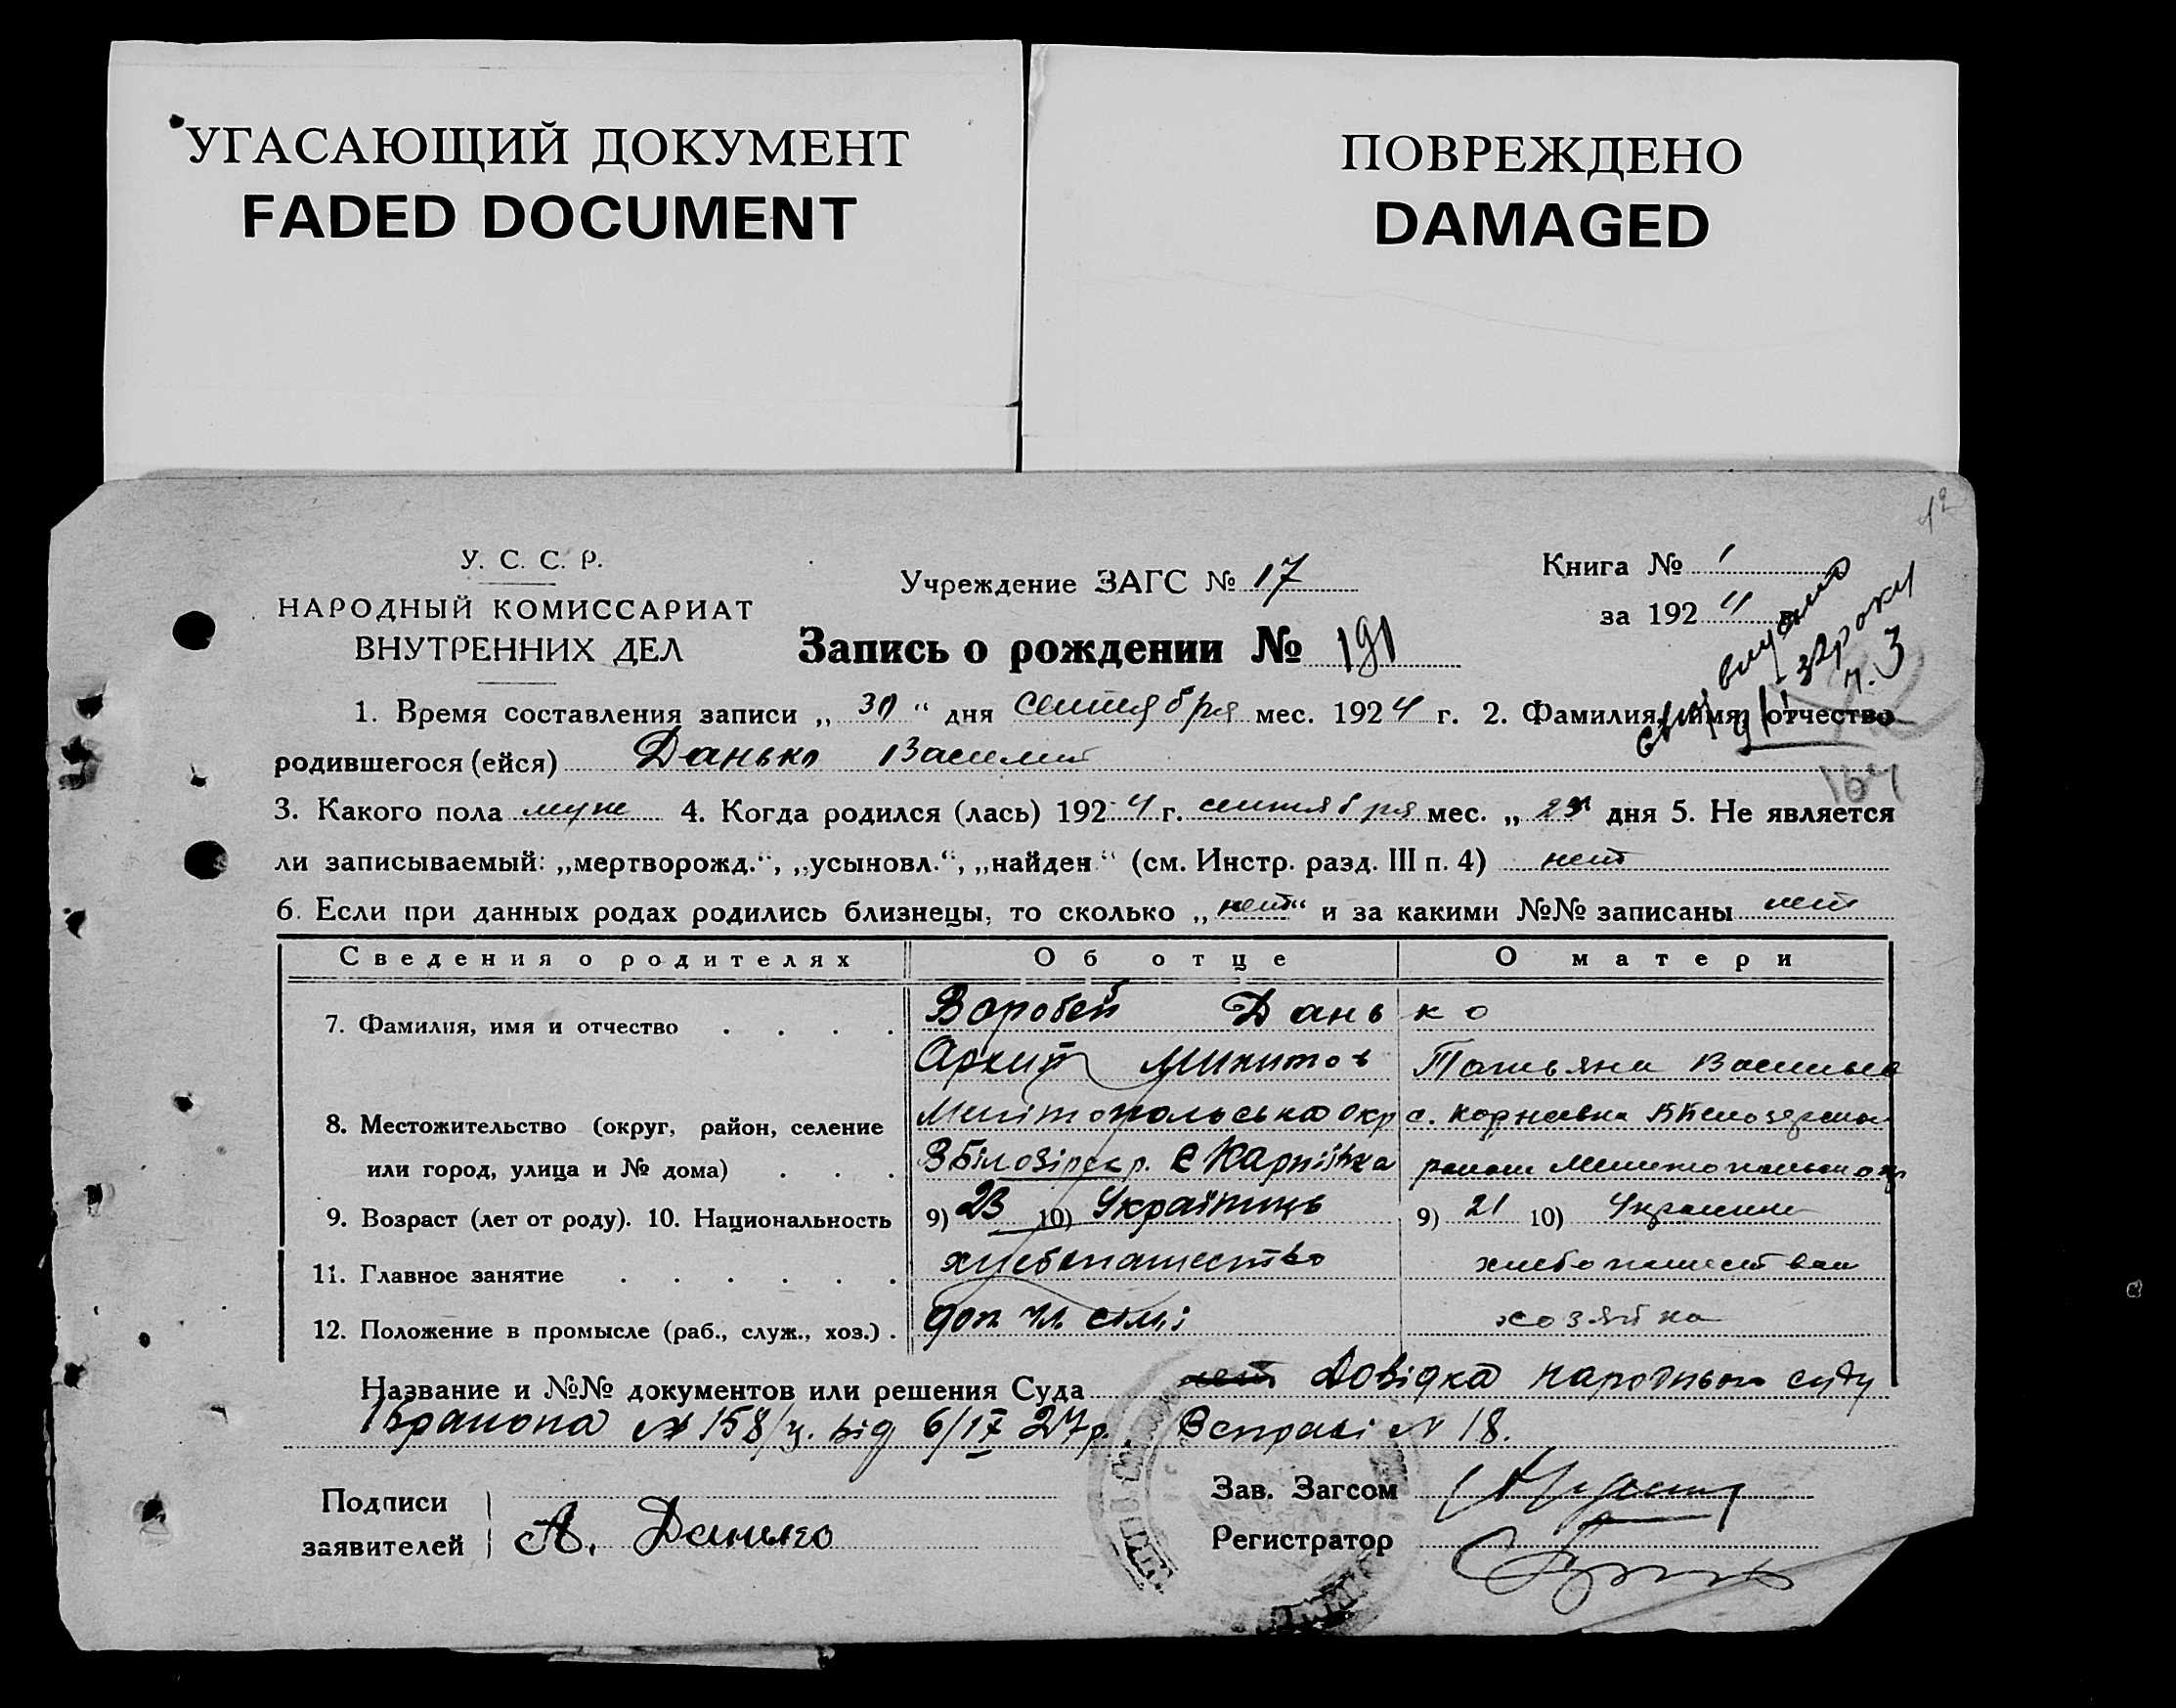 УГАСАЮЩИЙ ДОКУМЕНТ
FADED DOCUMENT
ПОВРЕЖДЕНО
DAMAGED
12
У. С. С. Р.
НАРОДНЫЙ КОМИССАРИАТ
ВНУТРЕННИХ ДЕЛ
Учреждение ЗАГС № 17
Книга № 1
за 1924
Запись о рождении № 191
1. Время составления записи „ 30 “ дня сентября мес. 1924 г. 2. Фамилия, имя, отчество
родившегося (ейся) Данько Василий
164
3. Какого пола муж 4. Когда родился (лась) 1924 г. сентября мес. „ дня 5. Не является
ли записываемый: „мертворожд.“, „усыновл.“, „найден“ (см. Инстр. разд. III п. 4) нет
6. Если при данных родах родились близнецы, то сколько „нет“ и за какими №№ записаны нет
Сведения о родителях Об отце О матери
7. Фамилия, имя и отчество . . . . Воробей Данько
Архип Микитов Татьяна Василье
8. Местожительство (округ, район, селение Мелітопольська окр с. Корнеевка
или город, улица и № дома) . . . Білозірск р. с Карніївка район Мелитопольск окр
9. Возраст (лет от роду). 10. Национальность 9) 23 10) Українець 9) 21 10)
11. Главное занятие . . . . . . хлебопашество
12. Положение в промысле (раб., служ., хоз.) . доп чл. сімї хозяйка
Название и №№ документов или решения Суда нет Довідка народнього суду
района № 158/у. від 6/IX 27р. В справі № 18.
Подписи
заявителей А. Данько
Зав. Загсом
Регистратор